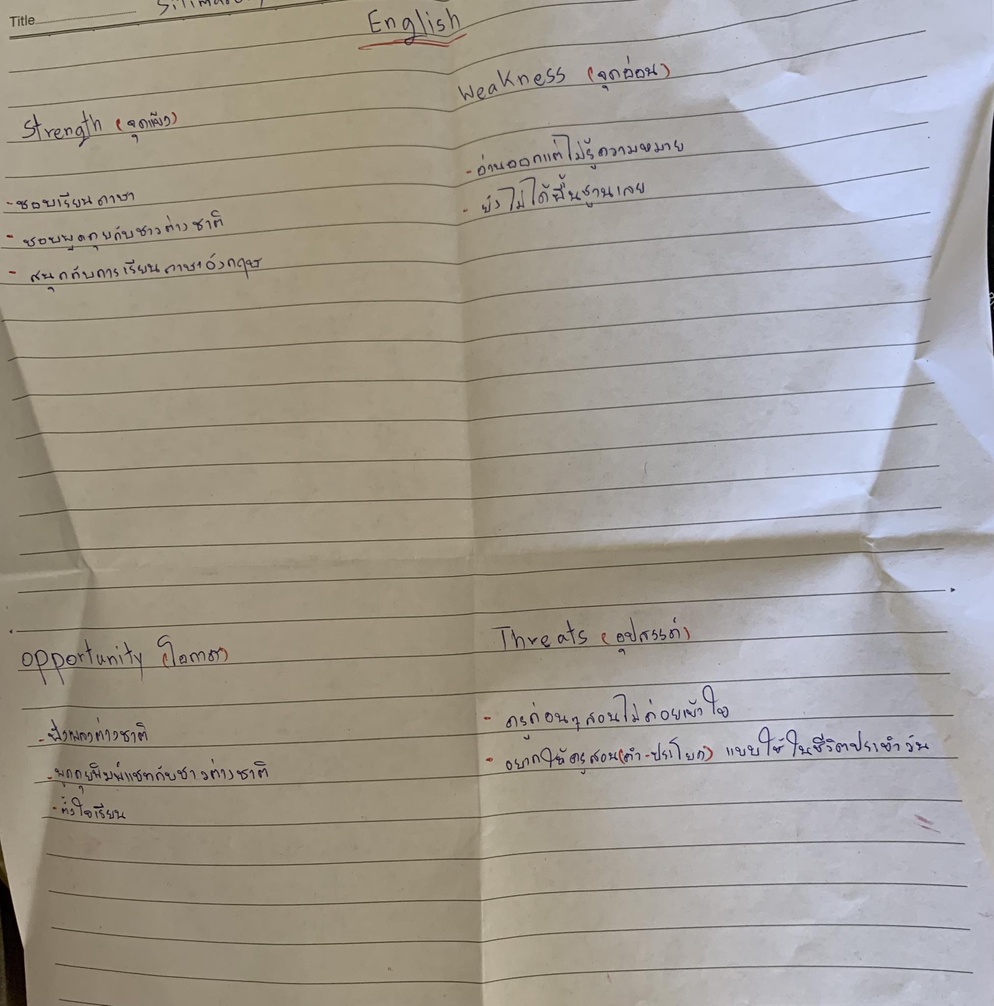 Title
English
Strength (จุดแข็ง)
- ชอบเรียนภาษา
- ชอบพูดคุยกับชาวต่างชาติ
- สนุกกับการเรียนภาษาอังกฤษ
Weakness (จุดอ่อน)
- อ่านออกแต่ไม่รู้ความหมาย
- ยังไม่ได้พื้นฐานเลย
opportunity (โอกาส)
- ฟังเพลงต่างชาติ
- พูดคุยพิมพ์แชทกับชาวต่างชาติ
- ตั้งใจเรียน
Threats (อุปสรรค์)
- ครูก่อนๆสอนไม่ค่อยเข้าใจ
- อยากให้ครูสอน(คำ-ประโยค) แบบใช้ในชีวิตประจำวัน